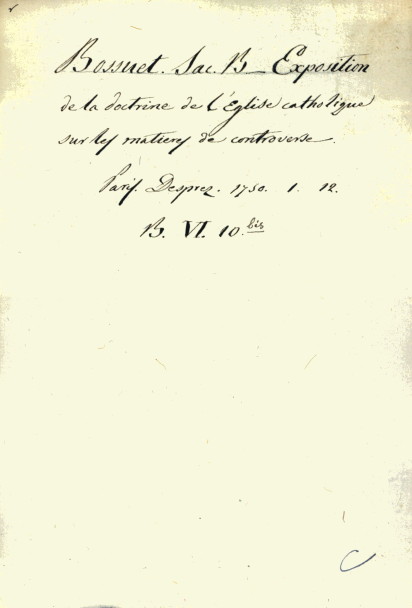 Bossuet. Jac. B _ Exposition
de la doctrine de l'Eglise catholique
sur les matieres de controverse.
Paris. Desprez. 1750. 1. 12.
B. VI. 10.bis
C